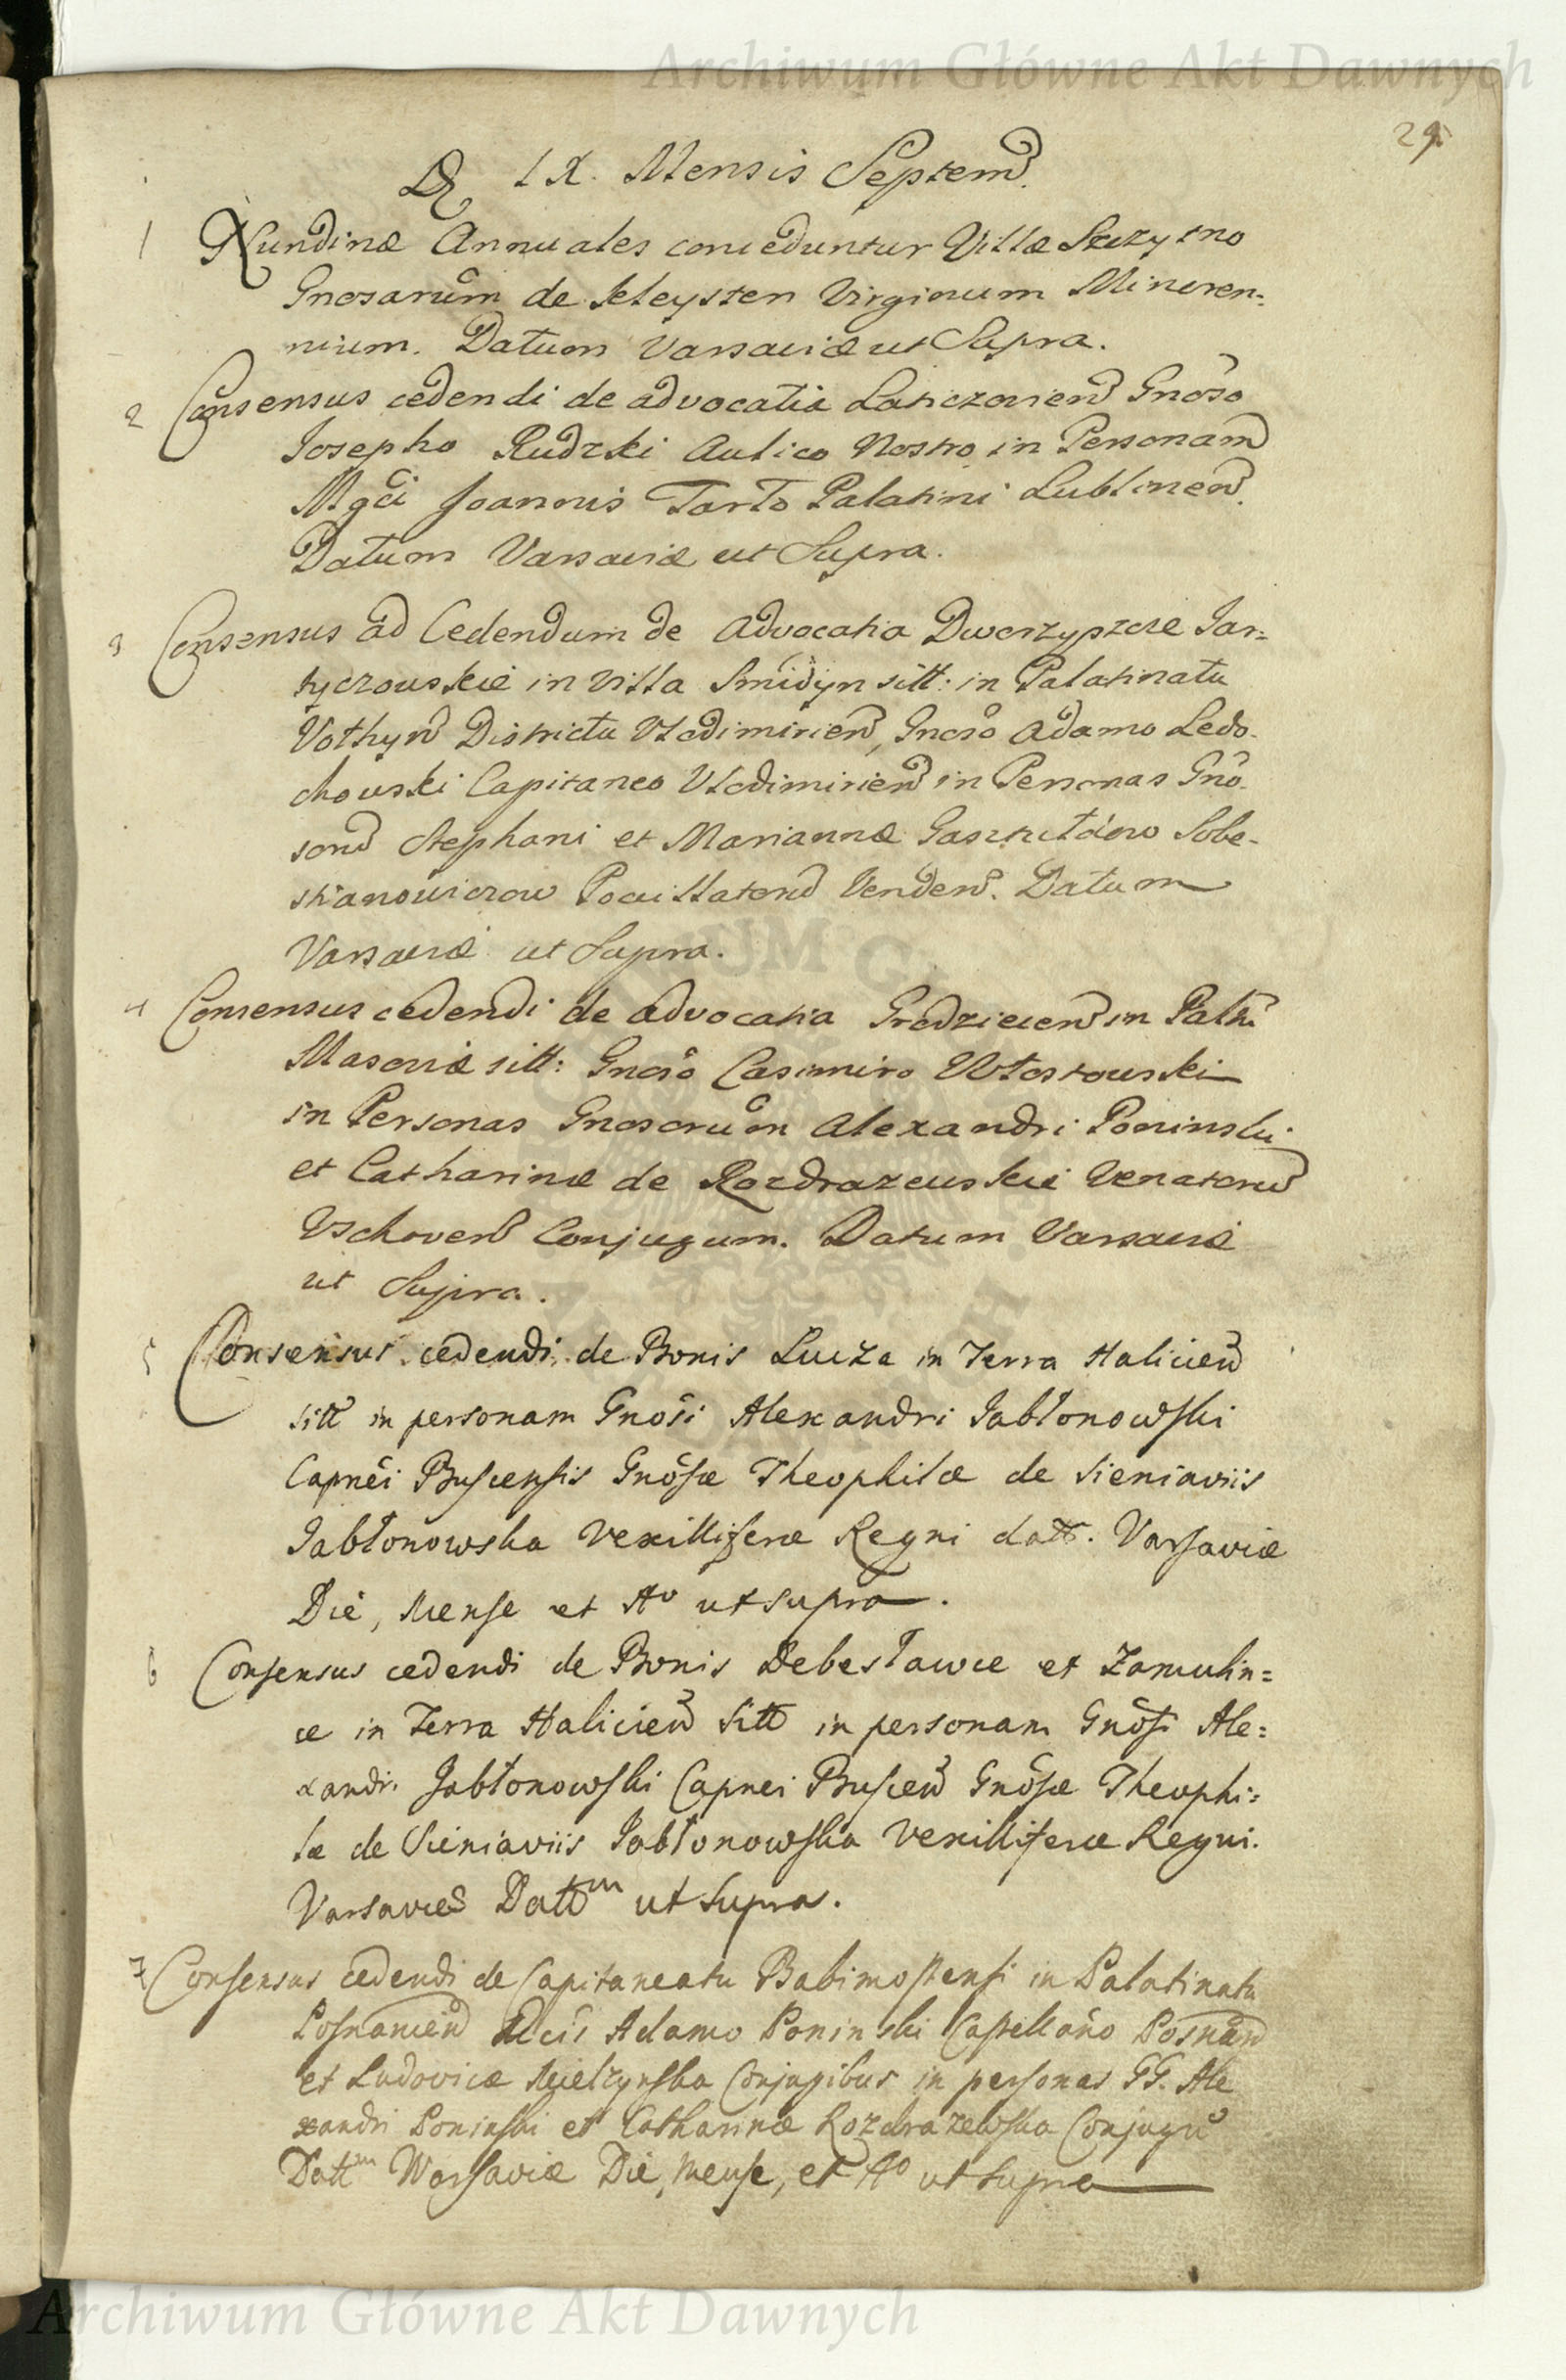 Archiwum Główne Akt Dawnych
29
D. IX. Mensis Septem̃.
1 Nundinæ Annuales conceduntur Villæ Szczytno
Gnosarum̃ de Kleysten Virginum Minoren=
nium. Datum Varsaviæ ut Supra.
2 Consensus cedendi de advocatia Gnõso
Josepho Rudzki Aulico Nostro in Personam
Mgci Joannis Tarło Palatini Lublinen̄.
Datum Varsaviæ ut Supra.
3 Consensus ad Cedendum de Advocatia Dworzyszcze Jar=
tyczowskie in Villa Smidyn sitt: in Palatinatu
Volhyn̄ Districtu Vlodimirien̄, Gnoso Adamo Ledo-
chowski Capitaneo Vlodimirien̄ in Personas Gno-
sor̄ Stephani et Mariannæ Sobe-
stianowiczow Pocillator̄ Venden̄. Datum
Varsaviæ ut Supra.
4 Consensus cedendi de Advocatia Grodziecen̄ in Palt̄u
Masoviæ sitt: Gnoso Casimiro Włostowski
in Personas Gnosorum̃ Alexandri Poninski
et Catharinæ de Rozdrazewskie Venator̄
Vschoven̄ Conjugum. Datum Varsaviæ
ut Supra.
5 Consensus cedendi de Bonis Lucza in Terra Halicien̄
sitt̄ in personam Gnõsi Alexandri Jabłonowski
Capnei Buscensis Gnõsæ Theophilæ de Sieniaviis
Jabłonowska Vexilliferæ Regni datt̄. Varsaviæ
Die, Mense et Aº ut supra.
6 Consensus cedendi de Bonis Debesławce et Zamulin=
ce in Terra Halicien̄ Sitt̄ in personam Gnõsi Ale=
xandri Jabłonowski Capnei Buscen̄ Gnõsæ Theophi=
læ de Sieniaviis Jabłonowska Vexilliferæ Regni.
Varsaviæ Datt̄ᵐ ut Supra.
7 Consensus cedendi de Capitaneatu Babimostensi in Palatinatu
Posnanien̄ Adamo Poninski Castellano Posnan̄
et Ludovicæ Mielzynska Conjugibus in personas GG. Ale
xandri Poninski et Catharinæ Rozdrazewska Conjugū
Datt̄ᵐ Warsaviæ Die, Mense, et Aº ut Supra
Archiwum Główne Akt Dawnych